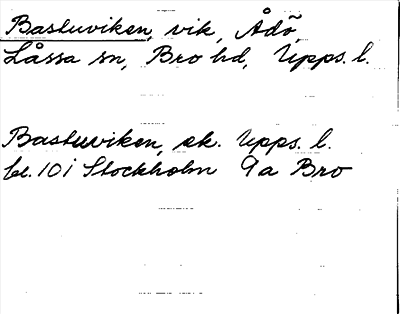 Bastuviken, vik, Ådö,
Låssa sn, Bro hd, Upps. l.
Bastuviken, ek. Upps. l.
bl. 10 i Stockholm 9a Bro